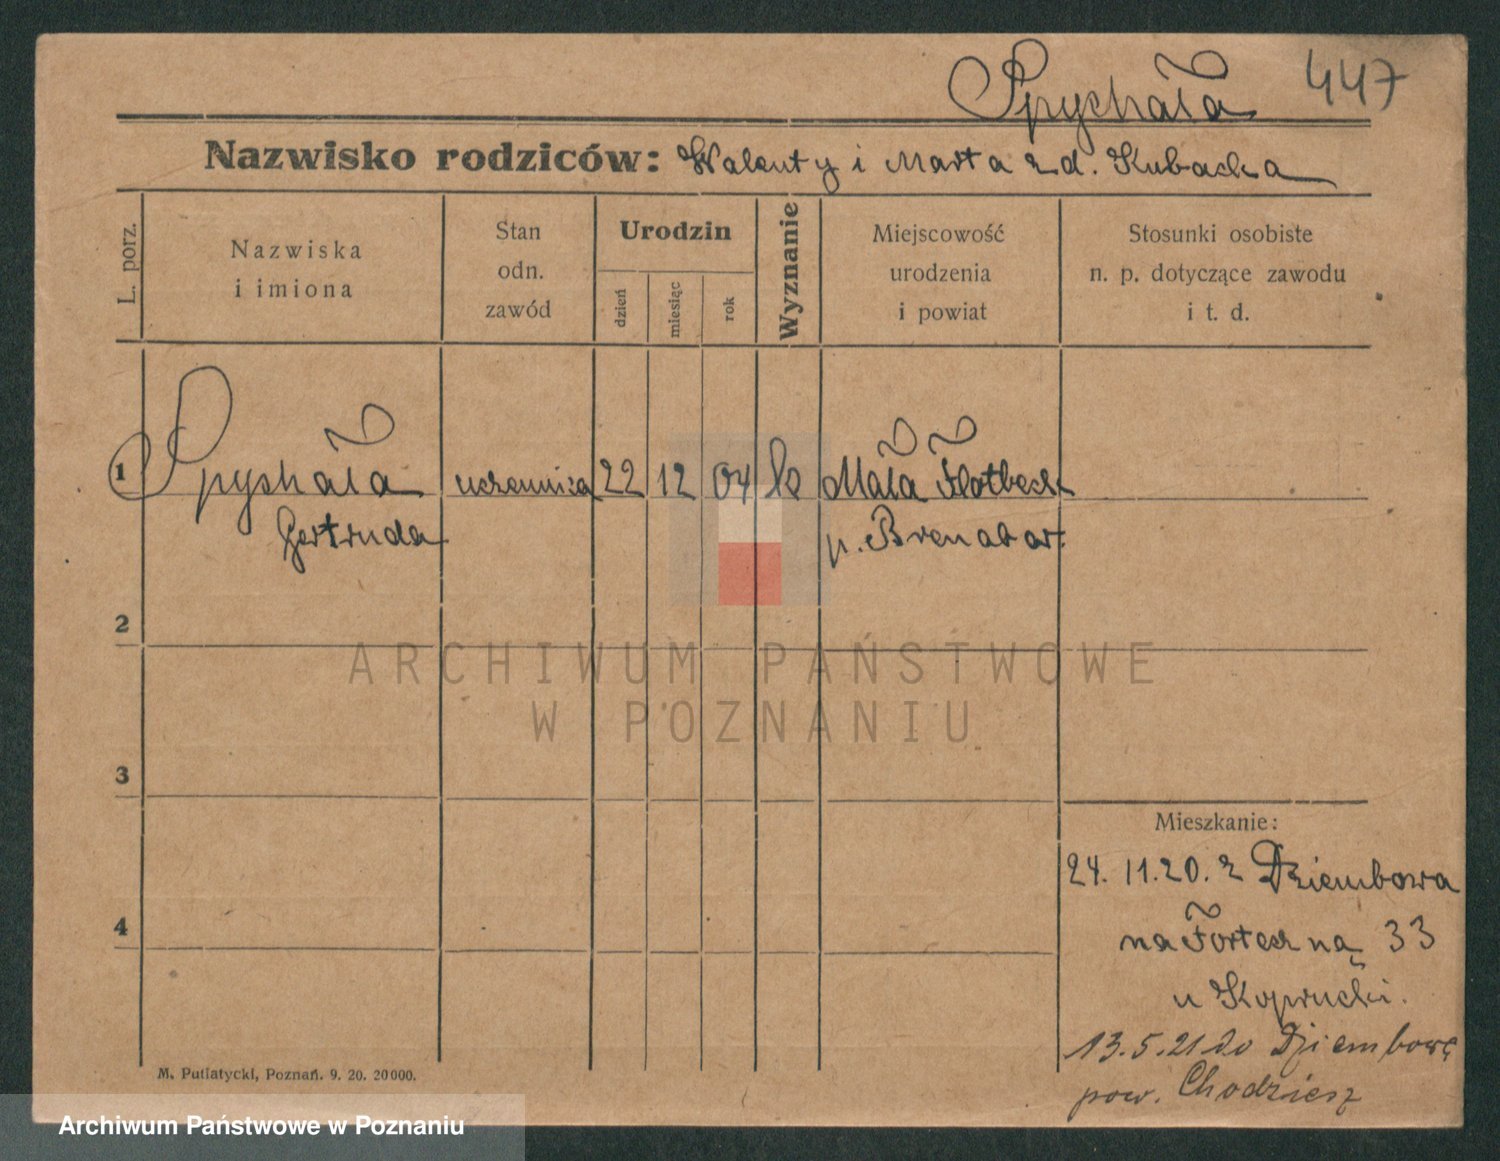 Spychała 447
Nazwisko rodziców: Walenty i Marta z d. Kubacka
L. porz.
Nazwiska
i imiona
Stan
odn.
zawód
Urodzin
dzień
miesiąc
rok
Wyznanie
Miejscowość
urodzenia
i powiat
Stosunki osobiste
n. p. dotyczące zawodu
i t. d.
1 Spychała uczennica 22 12 04 k Mała Flotbeck
Gertruda p.
2
ARCHIWUM PAŃSTWOWE
W POZNANIU
3
Mieszkanie:
24. 11. 20. z Dziembowa
4
na Forteczną 33
u
13. 5. 21 do Dziembowę
pow. Chodzież
M. Putiatycki, Poznań. 9. 20. 20000.
Archiwum Państwowe w Poznaniu